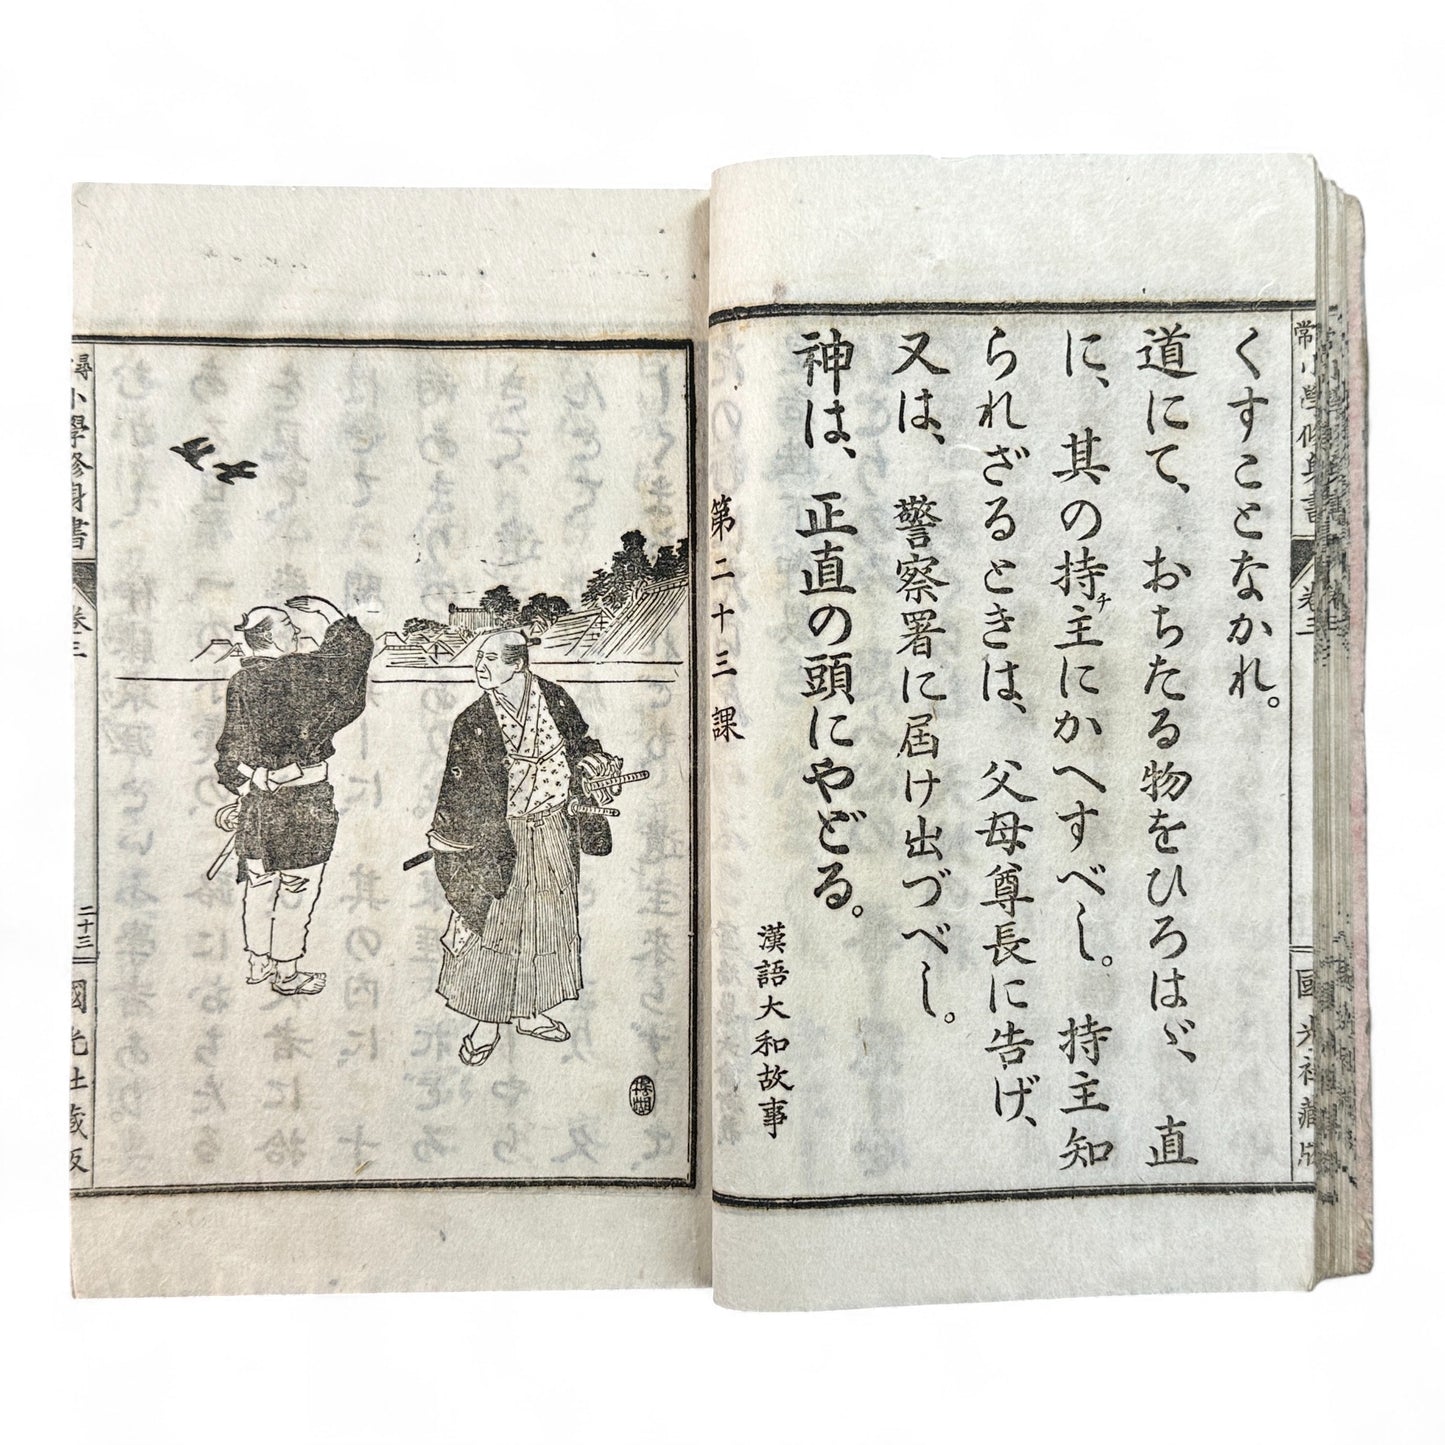 くすことなかれ。
道にて、おちたる物をひろはゞ、直
に、其の持チ主にかへすべし。持主知
られざるときは、父母尊長に告げ、
又は、警察署に屆け出づべし。
神は、正直の頭にやどる。
漢語大和故事
第二十三課
尋 小學修身書
卷三
二十三
國光社藏版
常小學修身書
卷三
國光社藏版